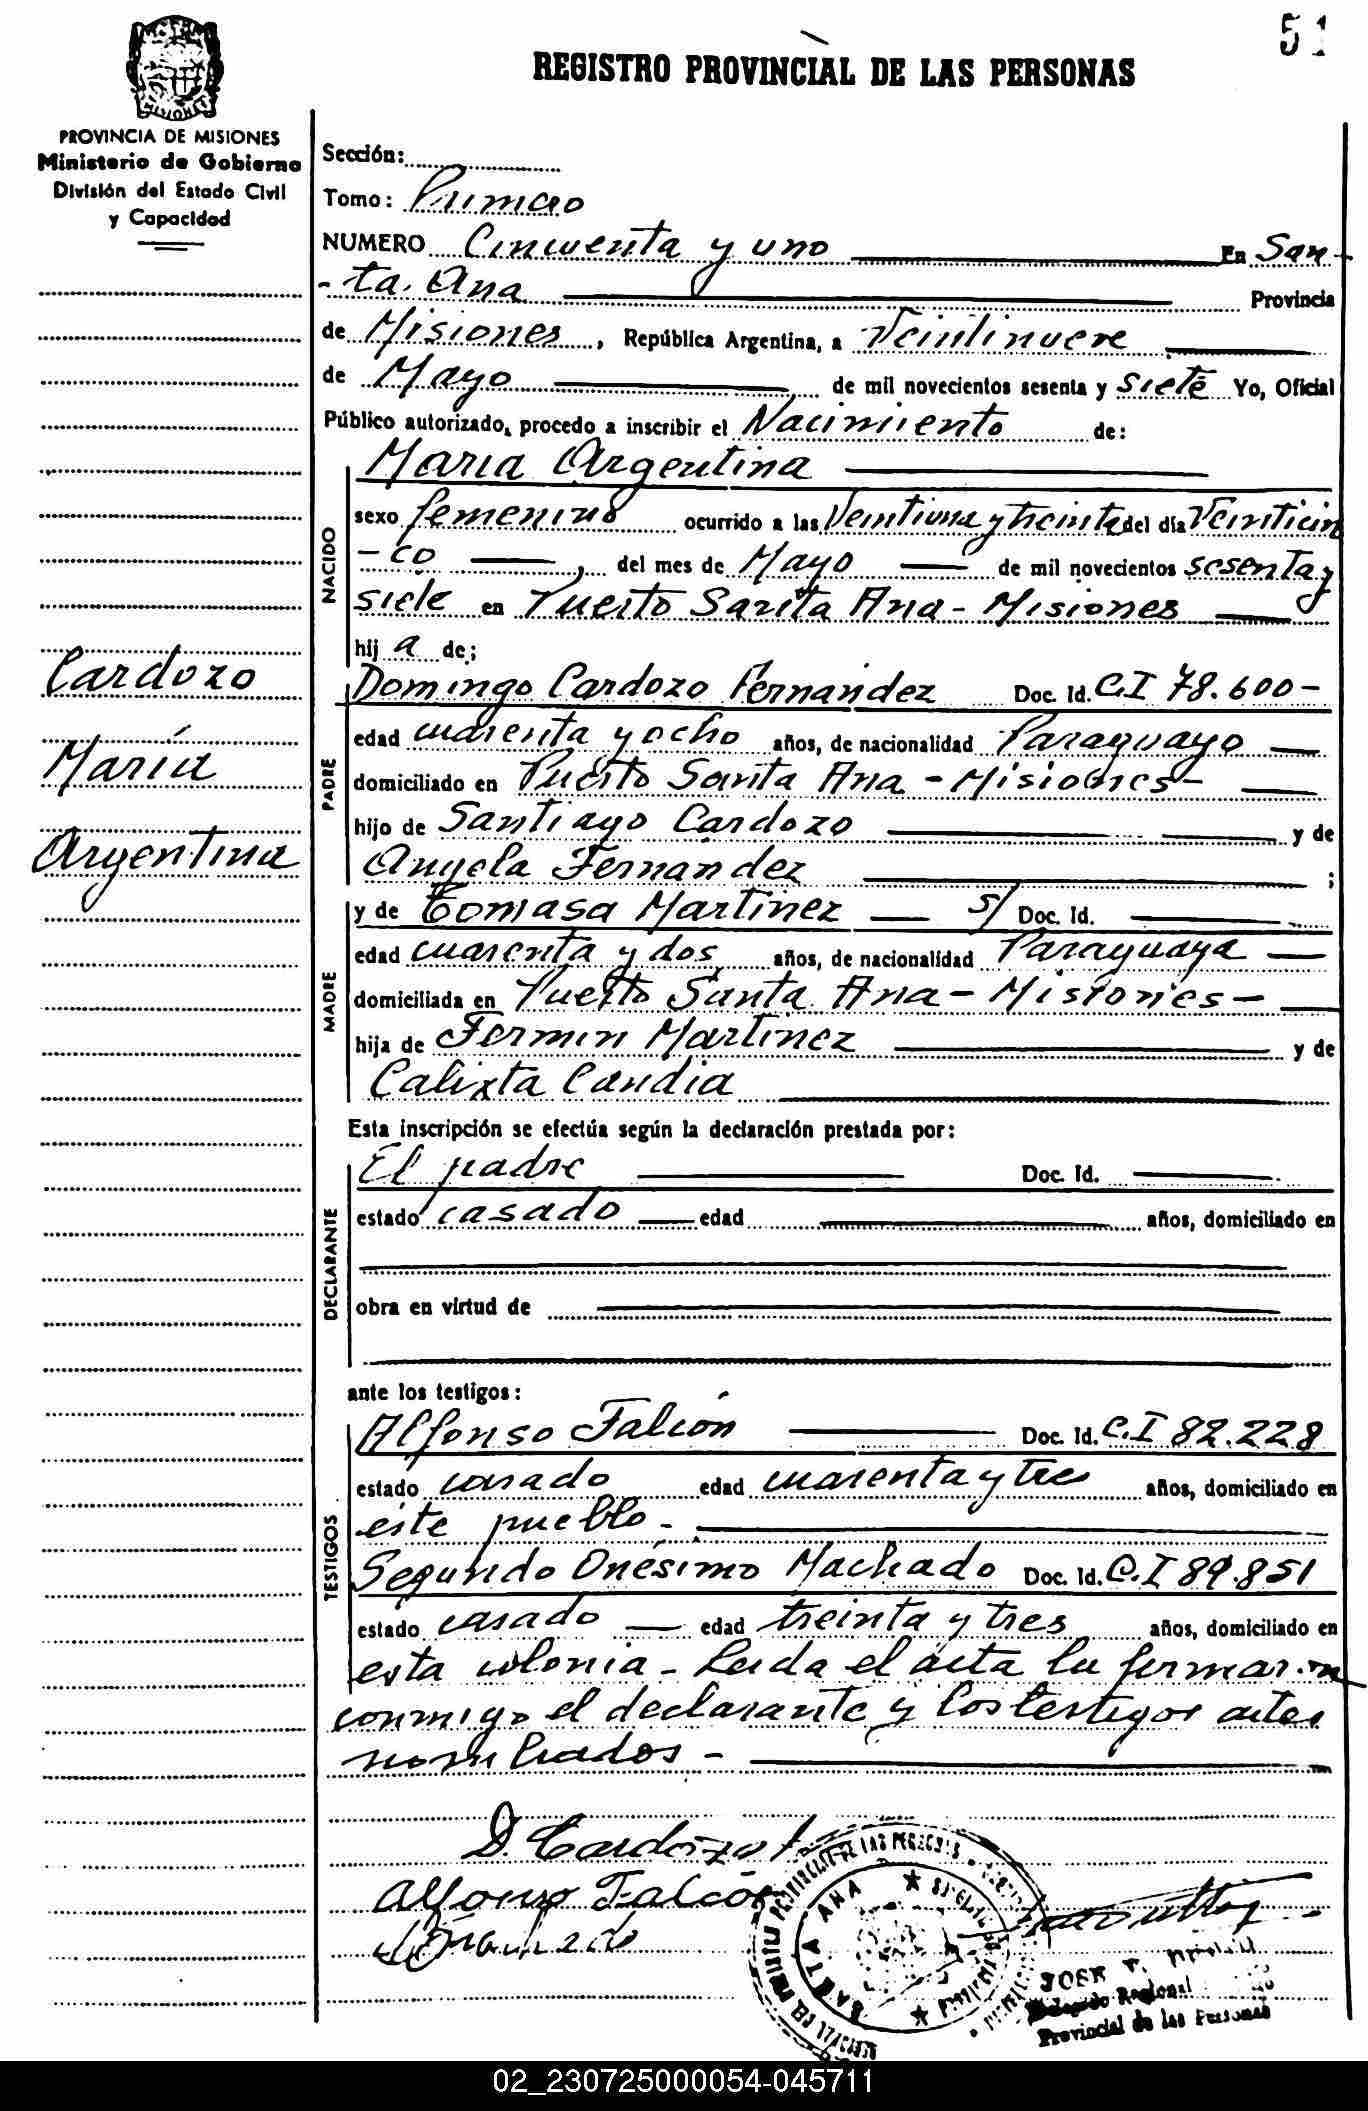 51
REGISTRO PROVINCIAL DE LAS PERSONAS
MISIONES
PROVINCIA DE MISIONES
Ministerio de Gobierno
División del Estado Civil
y Capacidad
Cardozo
María
Argentina
Sección:
Tomo: Primero
NUMERO Cincuenta y uno En San-
-ta. Ana Provincia
de Misiones, República Argentina, a Veintinueve
de Mayo de mil novecientos sesenta y siete Yo, Oficial
Público autorizado, procedo a inscribir el Nacimiento de:
Maria Argentina
NACIDO
sexo femenino ocurrido a las Veintiuna y treinta del día Veinticin
-co , del mes de Mayo de mil novecientos sesenta y
siete en Puerto Santa Ana - Misiones
hij a de;
PADRE
Domingo Cardozo Fernández Doc. Id. C.I 78.600-
edad cuarenta y ocho años, de nacionalidad Paraguayo
domiciliado en Puerto Santa Ana - Misiones-
hijo de Santiago Cardozo y de
Angela Fernandez ;
MADRE
y de Tomasa Martinez s/ Doc. Id.
edad cuarenta y dos años, de nacionalidad Paraguaya
domiciliada en Puerto Santa Ana - Misiones -
hija de Fermin Martinez y de
Calixta Candia
Esta inscripción se efectúa según la declaración prestada por:
DECLARANTE
El padre Doc. Id.
estado casado edad años, domiciliado en
obra en virtud de
ante los testigos:
TESTIGOS
Alfonso Falcón Doc. Id. C.I 82.228
estado casado edad cuarenta y tres años, domiciliado en
este pueblo -
Segundo Onésimo Machado Doc. Id. C.I 89.851
estado casado edad treinta y tres años, domiciliado en
esta colonia - Leida el acta la firmaron
conmigo el declarante y los testigos antes
nombrados -
D. Cardozo
Alfonso Falcón
SANTA ANA
JOSE
Delegado Regional
Provincial de las Personas
02_230725000054-045711